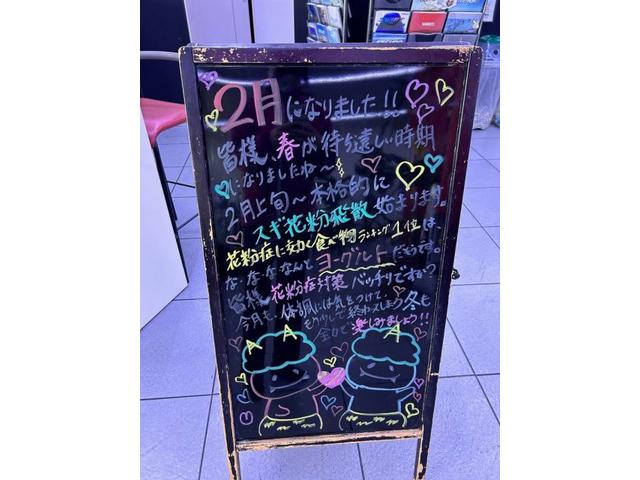 2月になりました!!
皆様、春が待ち遠しい時期
になりましたね〜
2月上旬〜本格的に
スギ花粉飛散始まります。
花粉症に効く食べ物ランキング1位は、
な、な、ななんとヨーグルトだそうです。
皆様、花粉症対策バッチリですか?
今月も、体調には気をつけて、
冬も
楽しみましょう!!